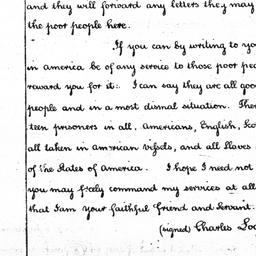 and they will forward any letters they may
the poor people here.
If you can by writing to yo
in america be of any service to those poor peo
reward you for it:. I can say they are all goo
people and in a most dismal situation. Ther
teen prisoners in all, americans, English, Sco
all taken in american vessels, and all slaves
of the States of america. I hope I need not
you may freely command my services at all
that I am your faithful friend and servant.
(signed) Charles Lo